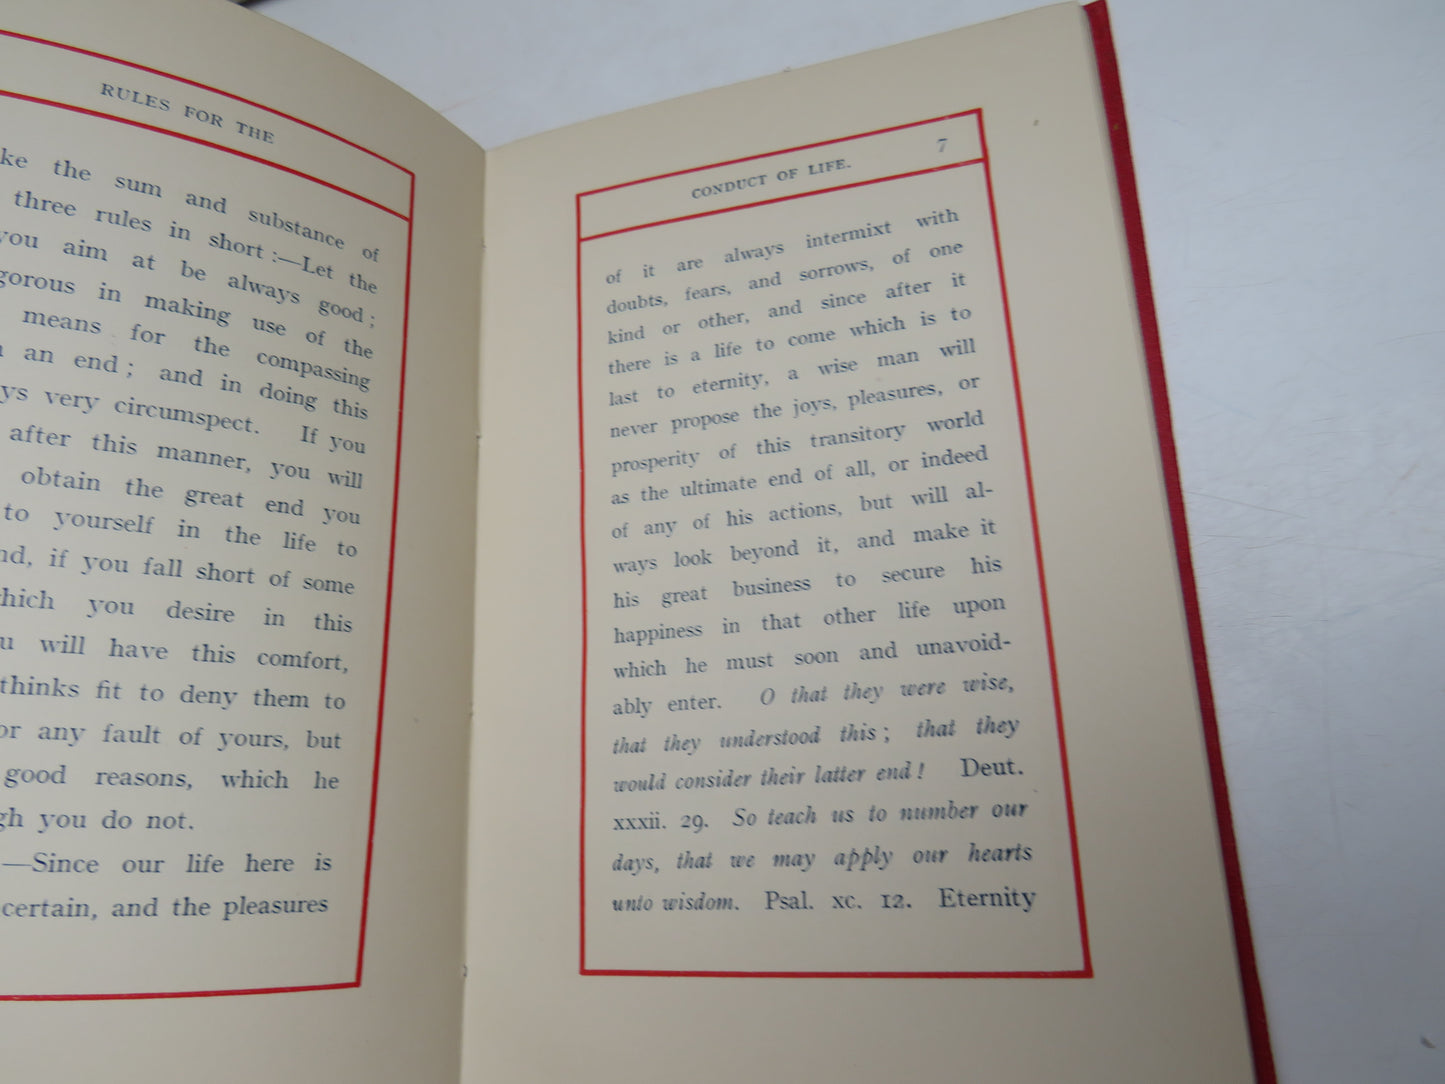 RULES FOR THE
ke the sum and substance of
three rules in short :—Let the
you aim at be always good ;
gorous in making use of the
means for the compassing
an end ; and in doing this
ys very circumspect. If you
after this manner, you will
obtain the great end you
to yourself in the life to
nd, if you fall short of some
hich you desire in this
u will have this comfort,
thinks fit to deny them to
or any fault of yours, but
good reasons, which he
gh you do not.
—Since our life here is
certain, and the pleasures
CONDUCT OF LIFE. 7
of it are always intermixt with
doubts, fears, and sorrows, of one
kind or other, and since after it
there is a life to come which is to
last to eternity, a wise man will
never propose the joys, pleasures, or
prosperity of this transitory world
as the ultimate end of all, or indeed
of any of his actions, but will al-
ways look beyond it, and make it
his great business to secure his
happiness in that other life upon
which he must soon and unavoid-
ably enter. O that they were wise,
that they understood this ; that they
would consider their latter end ! Deut.
xxxii. 29. So teach us to number our
days, that we may apply our hearts
unto wisdom. Psal. xc. 12. Eternity